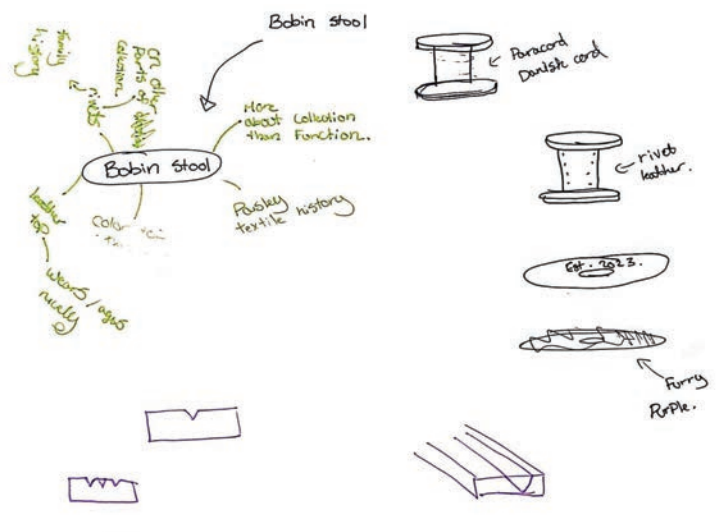 Bobin stool
Bobin stool
Family
history
rivets
on other
Parts of
collection.
More
about collection
than Function.
Paisley
textile history
Color
leather
top
wears / ages
nicely
Paracord
Danish cord
rivet
leather.
Est. 2023.
Furry
Purple.